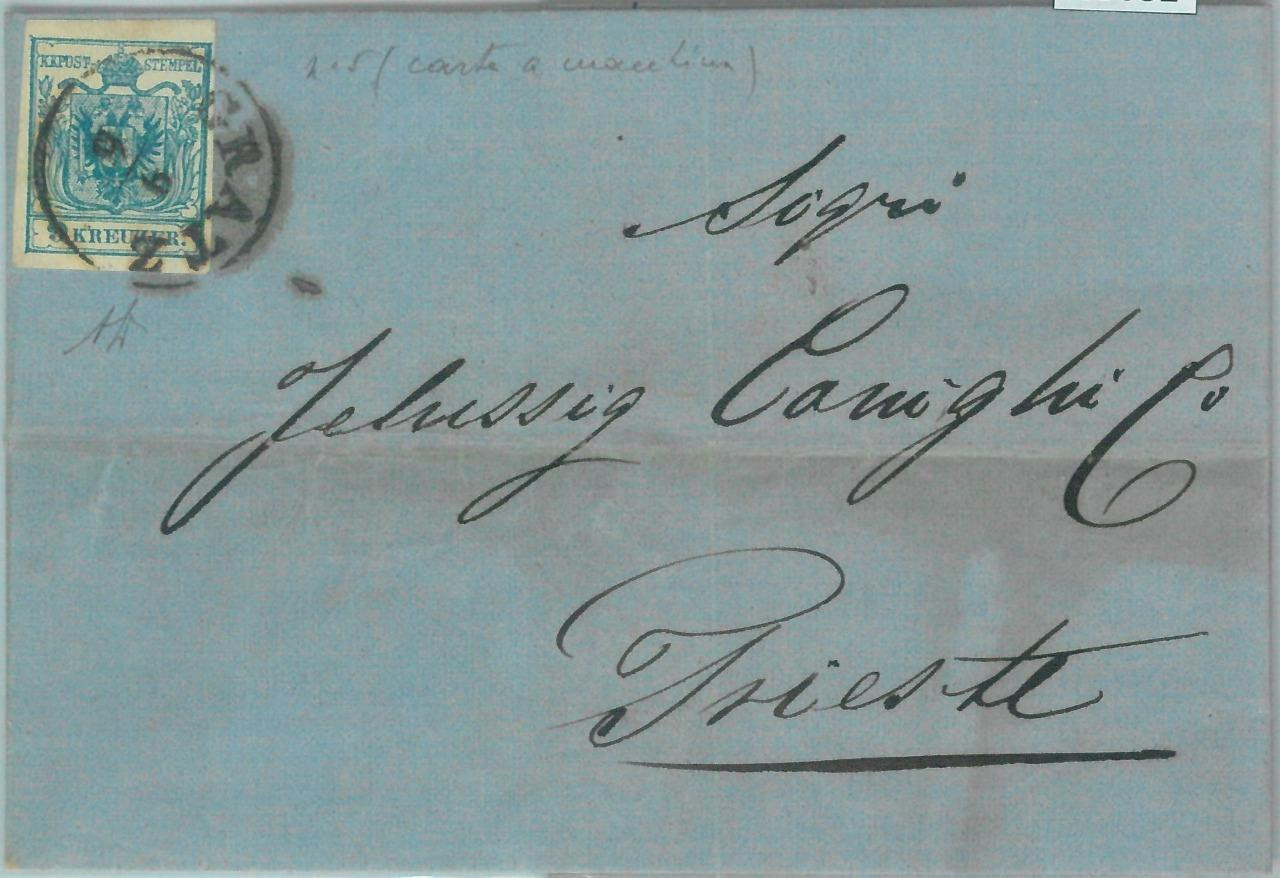 KKPOST-STEMPEL
9 KREUZER.
GRATZ
9/9
n° 5 (carta a macchina)
Sogri
Jelussig Canighi C°
Trieste